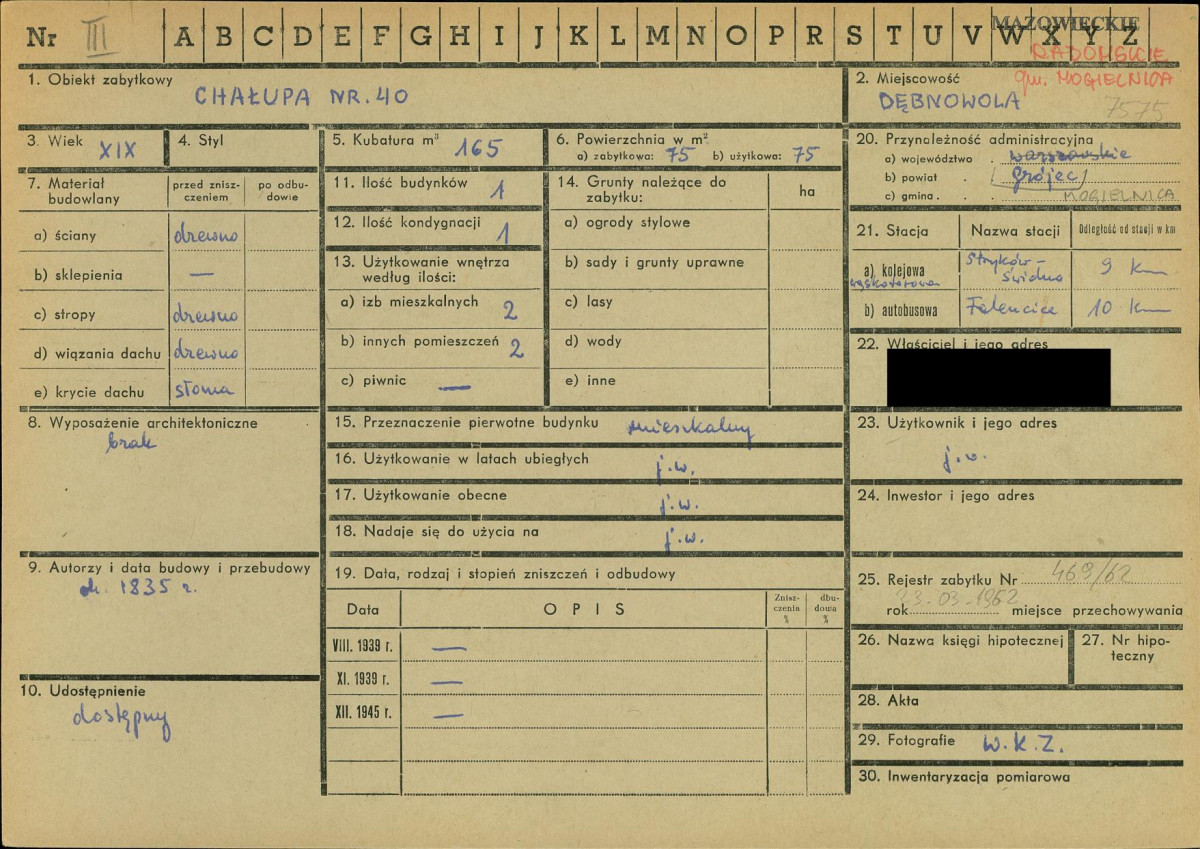 Nr III A B C D E F G H I J K L M N O P R S T U V W X Y Z
MAZOWIECKIE
RADOMSKIE
gm. MOGIELNICA
1. Obiekt zabytkowy
CHAŁUPA NR. 40
2. Miejscowość
DĘBNOWOLA
7575
3. Wiek XIX
4. Styl
5. Kubatura m³ 165
6. Powierzchnia w m²
a) zabytkowa: 75 b) użytkowa: 75
7. Materiał budowlany
przed zniszczeniem
po odbudowie
a) ściany drewno
b) sklepienia —
c) stropy drewno
d) wiązania dachu drewno
e) krycie dachu słoma
8. Wyposażenie architektoniczne
brak
9. Autorzy i data budowy i przebudowy
ok. 1835 r.
10. Udostępnienie
dostępny
11. Ilość budynków 1
12. Ilość kondygnacji 1
13. Użytkowanie wnętrza
według ilości:
a) izb mieszkalnych 2
b) innych pomieszczeń 2
c) piwnic —
14. Grunty należące do
zabytku:
ha
a) ogrody stylowe
b) sady i grunty uprawne
c) lasy
d) wody
e) inne
15. Przeznaczenie pierwotne budynku mieszkalny
16. Użytkowanie w latach ubiegłych j.w.
17. Użytkowanie obecne j.w.
18. Nadaje się do użycia na j.w.
19. Data, rodzaj i stopień zniszczeń i odbudowy
Data
OPIS
Zniszczenia %
dbudowa %
VIII. 1939 r. —
XI. 1939 r. —
XII. 1945 r. —
20. Przynależność administracyjna
a) województwo warszawskie
b) powiat Grójec
c) gmina MOGIELNICA
21. Stacja
Nazwa stacji
Odległość od stacji w km
a) kolejowa
wąskotorowa
Stryków-
Świdno
9 km
b) autobusowa Falencice 10 km
22. Właściciel i jego adres
23. Użytkownik i jego adres
j.w.
24. Inwestor i jego adres
25. Rejestr zabytku Nr 469/62
rok 23.03.1962 miejsce przechowywania
26. Nazwa księgi hipotecznej
27. Nr hipoteczny
28. Akta
29. Fotografie W.K.Z.
30. Inwentaryzacja pomiarowa